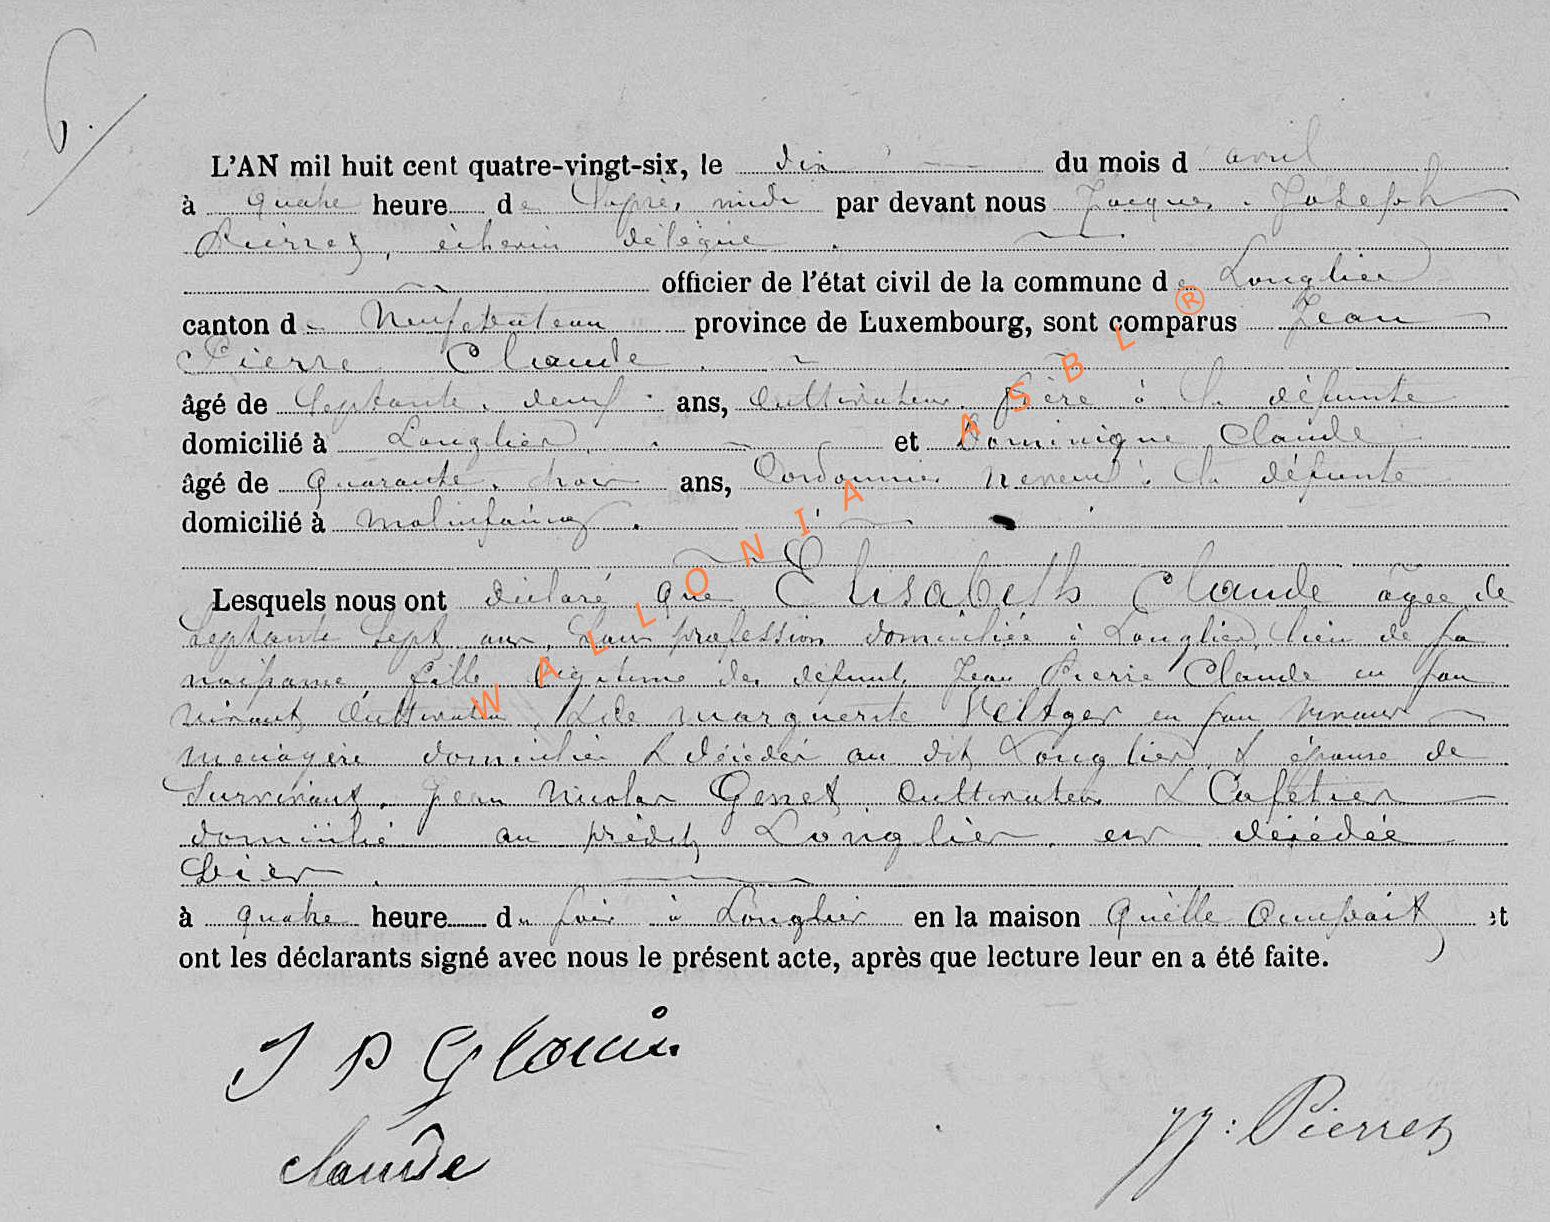 6.
L'AN mil huit cent quatre-vingt-six, le dix du mois d avril
à quatre heure de l'après midi par devant nous Jacques Joseph
Pierret, échevin délégué
officier de l'état civil de la commune de Longlier
canton de Neufchateau province de Luxembourg, sont comparus Jean
Pierre Claude
âgé de septante deux ans, cultivateur, frère à la défunte
domicilié à Longlier et Dominique Claude
âgé de quarante trois ans, Cordonnier neveu à la défunte
domicilié à Molinfaing
Lesquels nous ont déclaré que Elisabeth Claude agée de
septante sept ans, sans profession domiciliée à Longlier, lieu de sa
naissance, fille légitime des défunts Jean Pierre Claude en son
vivant cultivateur, & de Marguerite en son vivant
ménagère domiciliés & décédés au dit Longlier & épouse de
survivant, Jean Nicolas Genet, cultivateur & Cafetier
domicilié au prédit Longlier, est décédée
hier
à quatre heure du soir à Longlier en la maison qu'elle occupait et
ont les déclarants signé avec nous le présent acte, après que lecture leur en a été faite.
J P
Claude
JJ: Pierret
WALLONIA ASBL ®